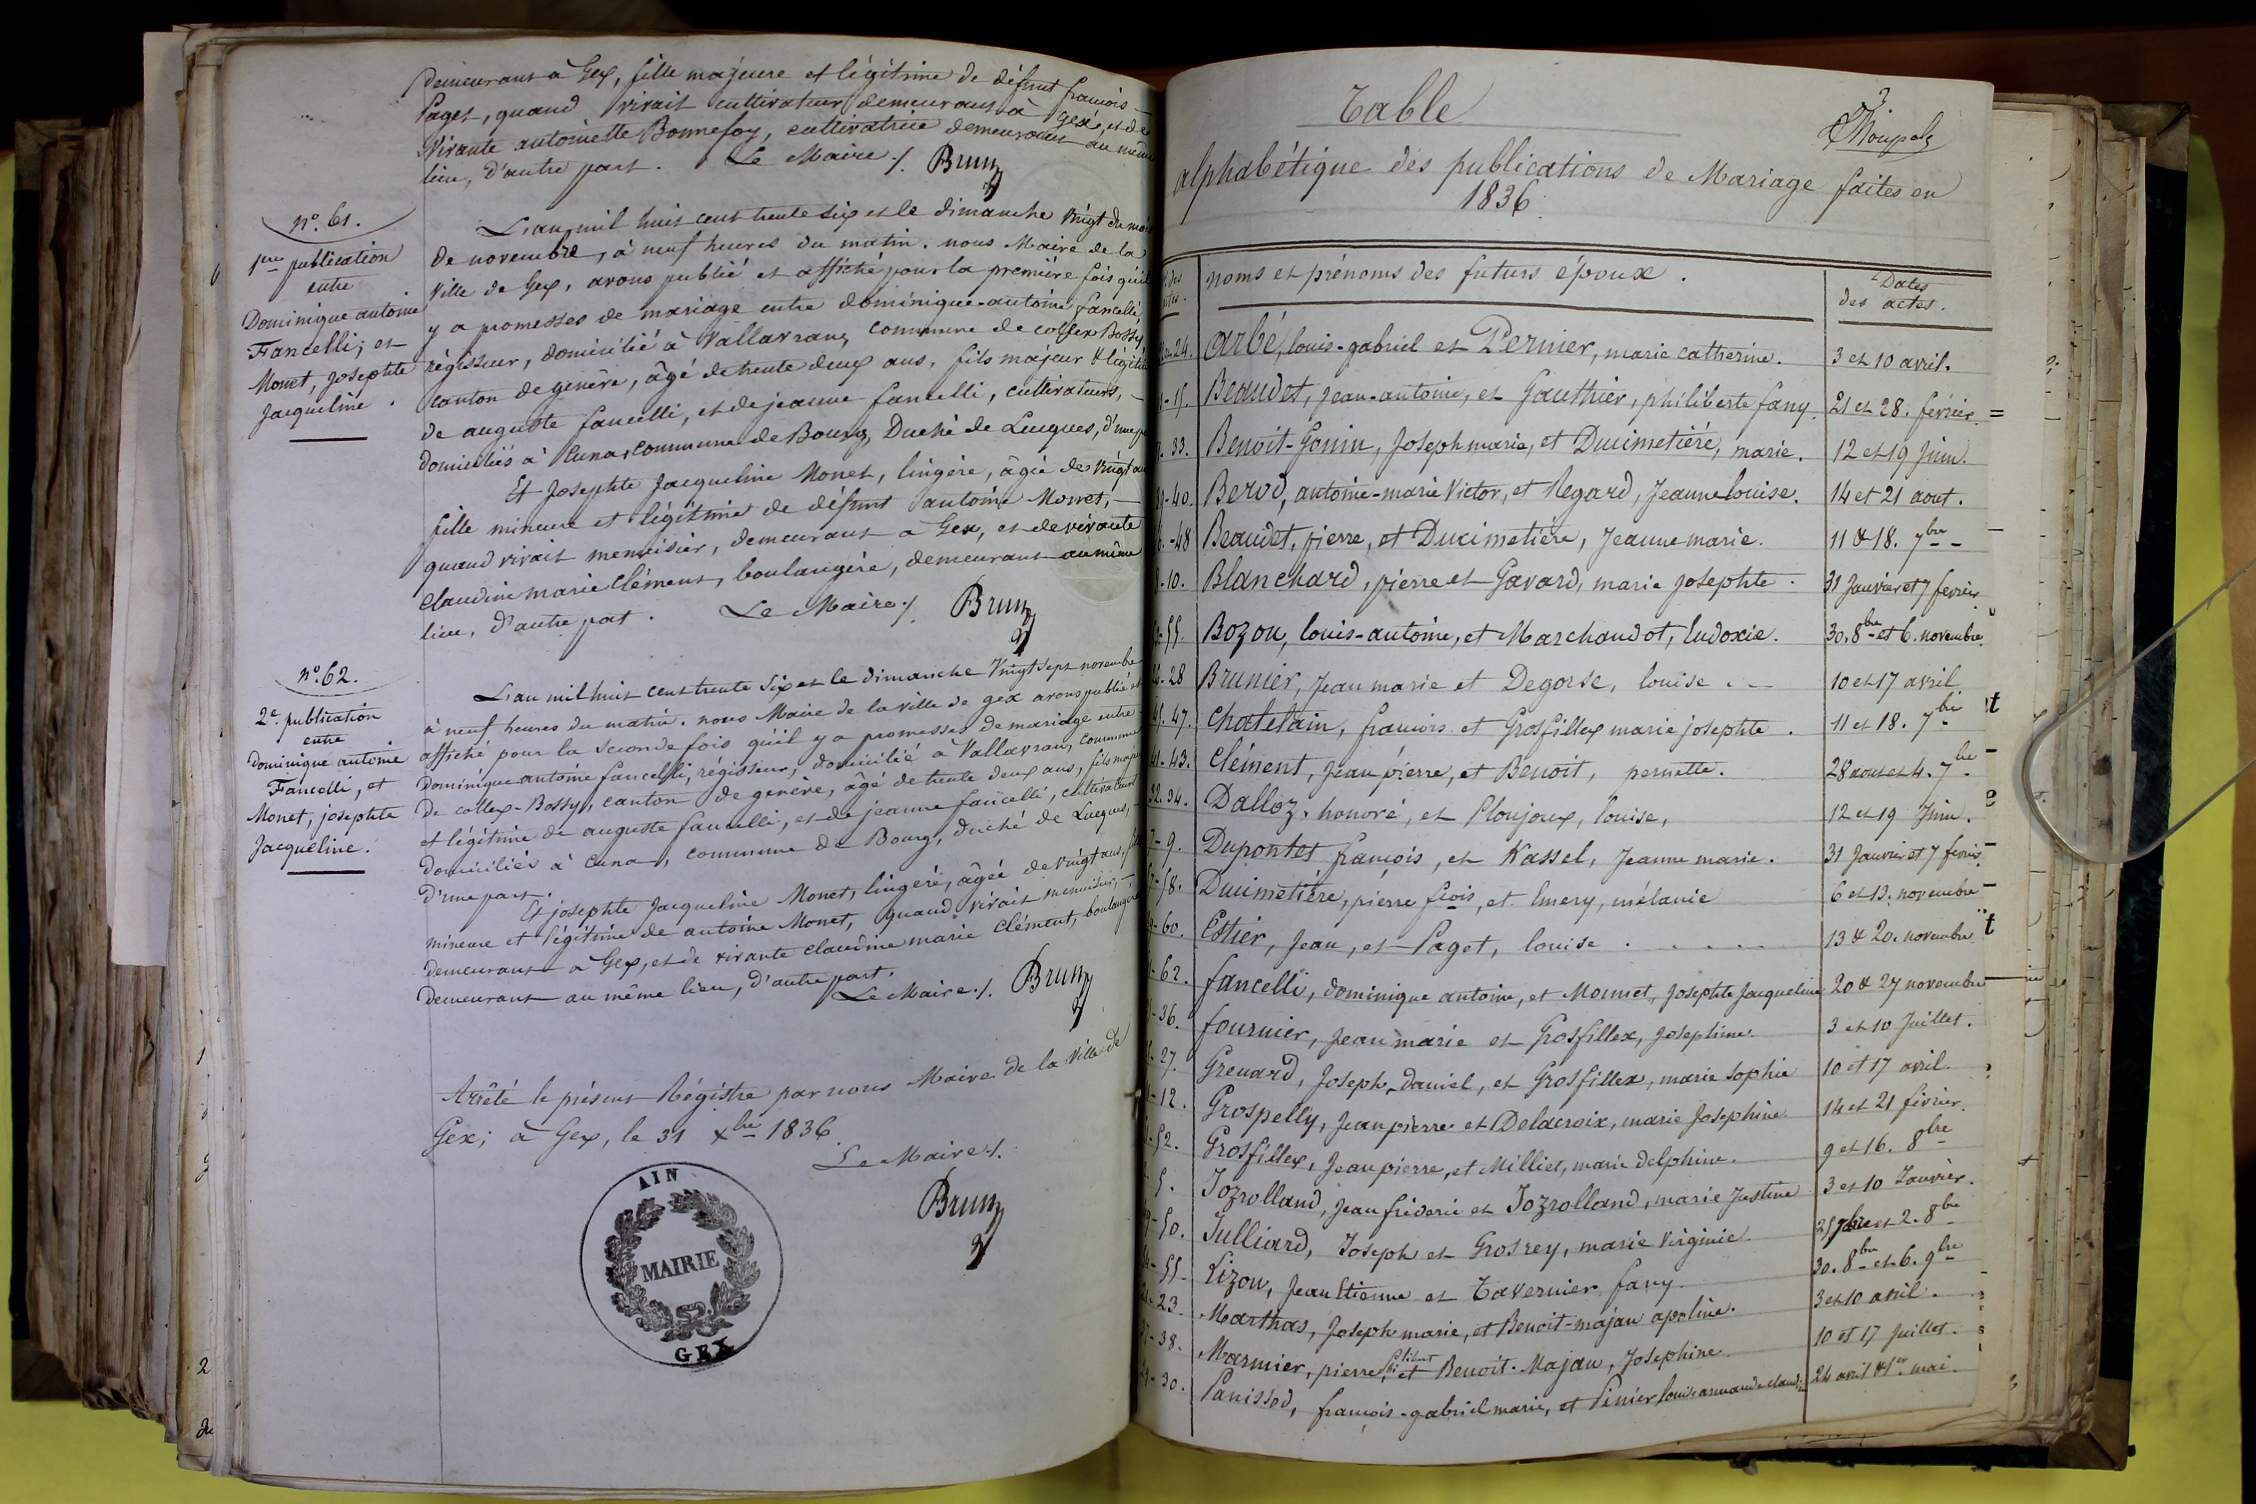 demeurant à Gex, fille majeure et légitime de défunt françois
Paget, quand vivait cultivateur demeurant à Gex, et de
vivante antoinette Bonnefoy, cultivatrice demeurant au même
lieu, d'autre part. Le Maire ./. Brun
n.º 61.
1ere publication
entre
Dominique antoine
Fancelli; et
Monet, josephte
Jacqueline.
L'an mil huit cent trente six et le dimanche vingt du mois
de novembre, à neuf heures du matin. nous Maire de la
ville de Gex, avons publié et affiché pour la première fois qu'il
y a promesses de mariage entre dominique-antoine fancelli,
régisseur, domicilié à Vallavran, commune de collex Bossy,
canton de genève, âgé de trente deux ans, fils majeur & légitime
de auguste fancelli, et de jeanne fancelli, cultivateurs,
domiciliés à Cuna, commune de Bourg, Duché de Lucques, d'une part
Et Josephte Jacqueline Monet, lingère, âgée de vingt ans
fille mineure et légitime de défunt antoine Monet,
quand vivait menuisier, demeurant à Gex, et de vivante
claudine marie Clément, boulangère, demeurant au même
lieu, d'autre part. Le Maire ./. Brun
n.º 62.
2e. publication
entre
dominique antoine
Fancelli, et
Monet, josephte
Jacqueline.
L'an mil huit cent trente six et le dimanche Vingt sept novembre
à neuf heures du matin. nous Maire de la ville de gex avons publié et
affiché pour la seconde fois qu'il y a promesses de mariage entre
Dominique antoine fancelli, régisseur, domicilié à Vallavran, commune
de collex-Bossy, canton de genève, âgé de trente deux ans, fils majeur
et légitime de auguste fancelli, et de jeanne fancelli, cultivateurs
domiciliés à Cuna, commune de Bourg, duché de Lucques,
d'une part.
Et josephte Jacqueline Monet, lingère, âgée de vingt ans, fille
mineure et légitime de antoine Monet, quand vivait menuisier,
demeurant à Gex, et de vivante claudine marie Clément, boulangère
demeurant au même lieu, d'autre part.
Le Maire ./. Brun
Arrêté le présent Régistre par nous Maire de la Ville de
Gex; à Gex, le 31 Xbre 1836
Le Maire ./.
Brun
AIN
MAIRIE
GEX
Table
alphabétique des publications de Mariage faites en
1836
noms et prénoms des futurs époux. Dates des actes.
24. arbé, louis-gabriel et Pernier, marie catherine. 3 et 10 avril.
15. Beaudet, Jean-antoine, et Gauthier, philiberte fany. 21 et 28. février.
33. Benoit-Gonin, Joseph marie, et Ducimetière, marie. 12 et 19 Juin.
40. Berod, antoine-marie Victor, et Regard, Jeanne louise. 14 et 21 aout.
48 Beaudet, pierre, et Ducimetière, Jeanne marie. 11 & 18. 7bre
10. Blanchard, pierre et Gavard, marie josephte. 31 Janvier et 7 fevrier
55. Bozon, louis-antoine, et Marchandot, ludoxie. 30. 8bre et 6. novembre.
28 Brunier, Jean marie et Degorse, louise 10 et 17 avril
47. Chatelain, francois et Grosfillex marie josephte. 11 et 18. 7bre
41-43. Clément, Jean pierre, et Benoit, pernette. 28 aout et 4. 7bre
32-34. Dalloz, honoré, et Ploujoux, louise, 12 et 19 Juin.
7-9. Dupontet françois, et Kassel, Jeanne marie. 31 Janvier et 7 fevrier
58. Ducimetière, pierre fçois, et Emery, mélanie 6 et 13. novembre
60. Estier, Jean, et Paget, louise 13 & 20. novembre
62. fancelli, dominique antoine, et Monnet, Josephte Jacqueline 20 & 27 novembre
36. fournier, Jean marie et Grosfillex, Josephine. 3 et 10 Juillet.
27. Grenard, Joseph, Daniel, et Grosfillex, marie sophie 10 et 17 avril.
12. Grospelly, Jean pierre et Delacroix, marie Josephine 14 et 21 février.
52. Grosfillex, Jean pierre, et Milliet, marie delphine. 9 et 16. 8bre
5. Jozrolland, Jean fréderic et Jozrolland, marie Justine 3 et 10 Janvier.
50. Julliard, Joseph et Grosrey, marie Virginie. 25 7bre et 2. 8bre
55 Lizon, Jean Etienne et Tavernier, fany 30. 8bre et 6. 9bre
23. Marthas, Joseph marie, et Benoit-majan apoline. 3 et 10 avril.
38. Marmier, pierre philibert et Benoit-Majan, Josephine 10 et 17 Juillet.
30. Panissod, françois-gabriel marie, et Penier louise armande 24 avril & 1er. mai.